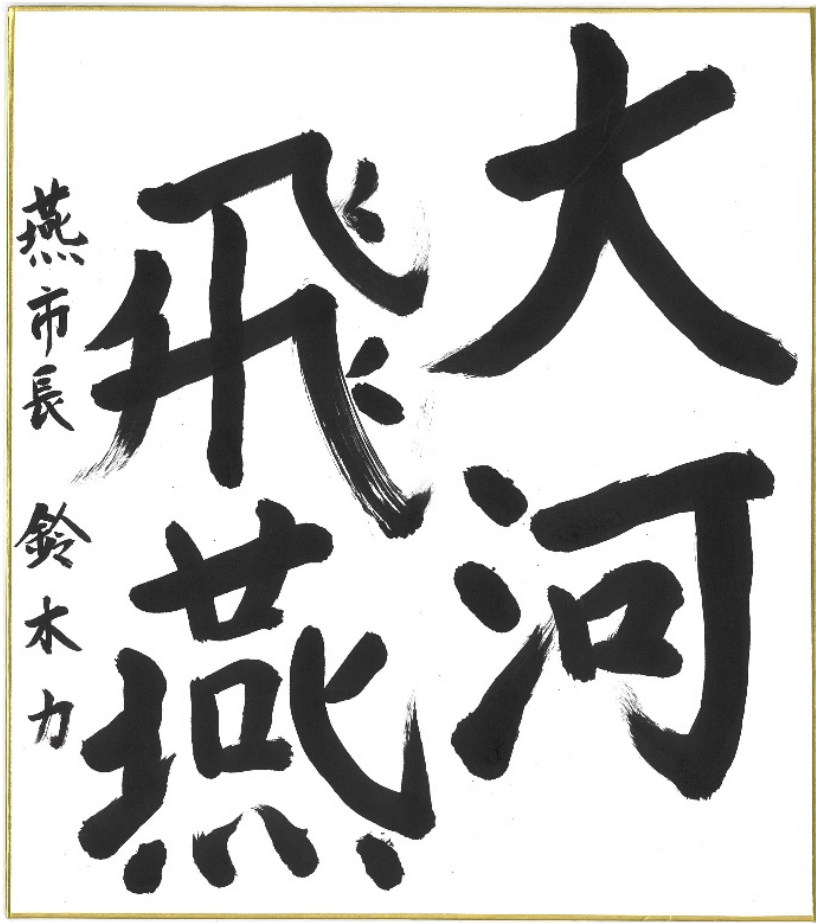 大河
飛燕
燕市長 鈴木力